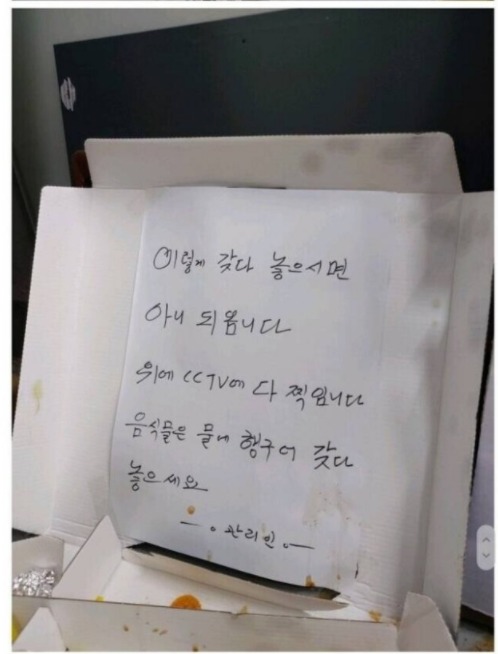 이렇게 갖다 놓으시면
아니 되옵니다
위에 CCTV에 다 찍힙니다
음식물은 물에 헹구어 갖다
놓으세요
—。관리인。—